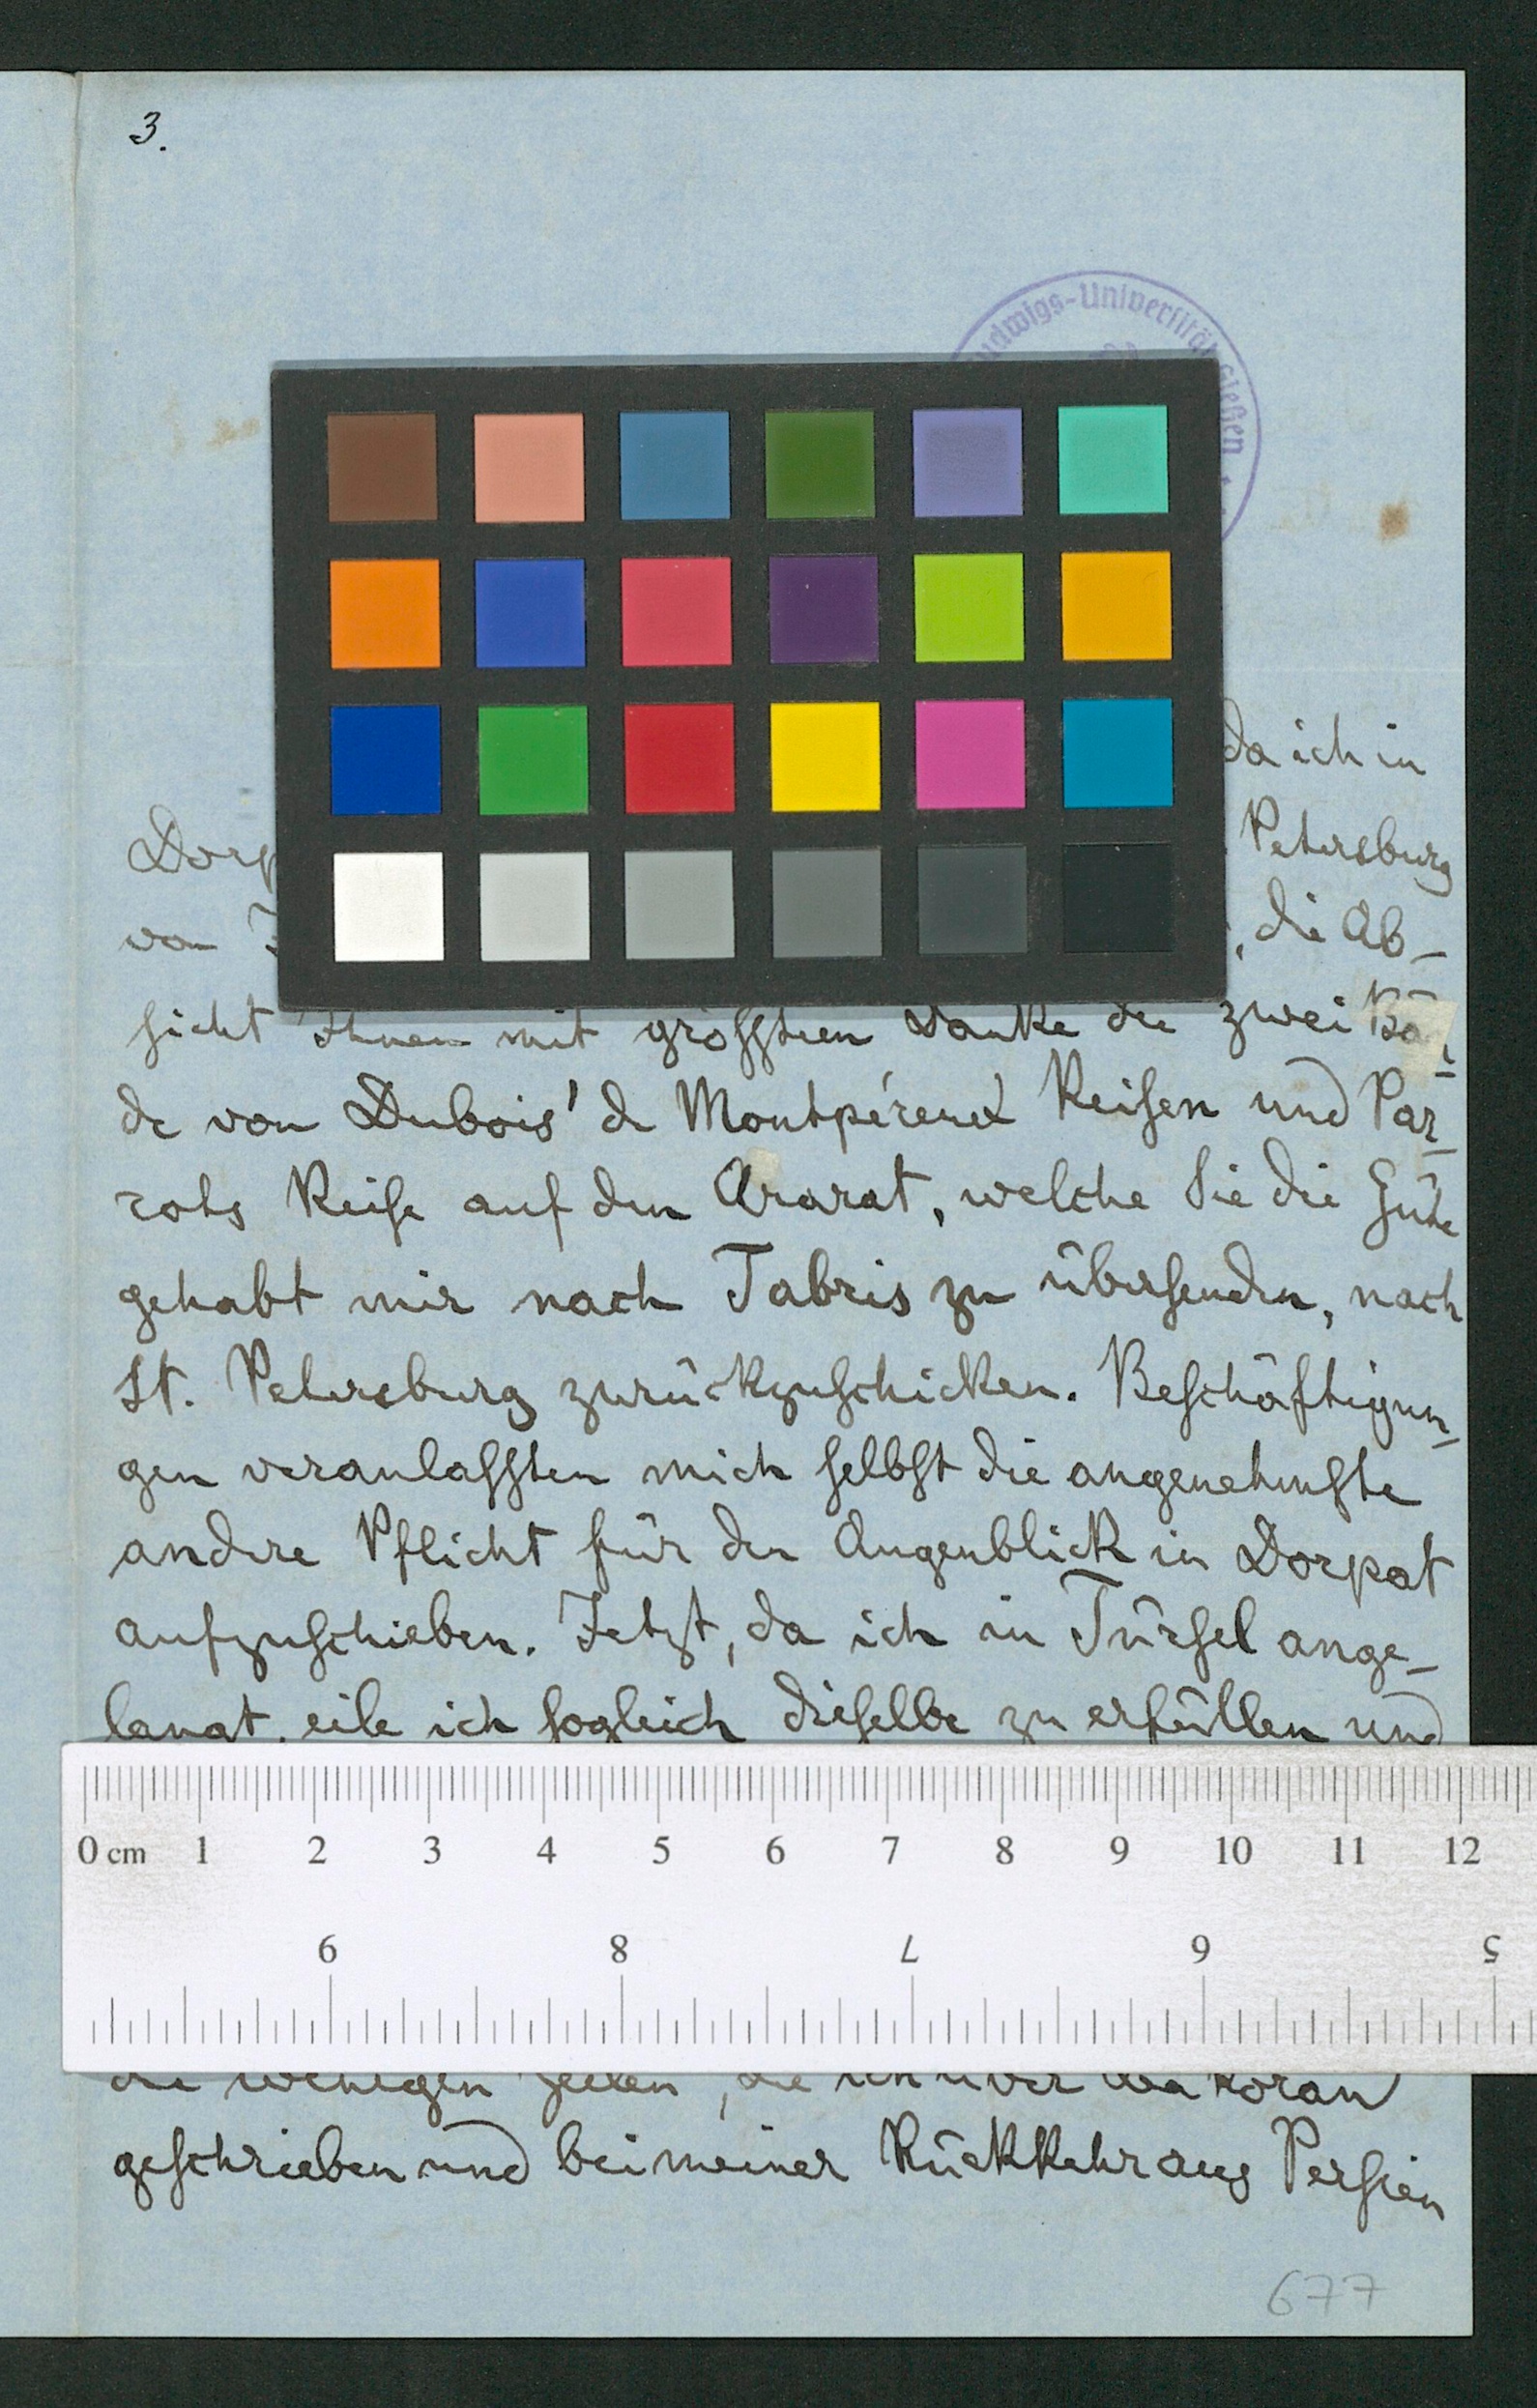 3.
udwigs-Universität Gießen
da ich in
Dorp Petersburg
von , die Ab-
sicht Ihnen mit grössten Danke die zwei Bä-
de von Dubois' de Montpéreux Reisen und Par-
rots Reise auf den Ararat, welche Sie die Güte
gehabt mir nach Tabris zu übersenden, nach
St. Petersburg zurückzuschicken. Beschäftigun-
gen veranlassten mich selbst die angenehmste
andere Pflicht für den Augenblick in Dorpat
aufzuschieben. Jetzt, da ich in Türsel ange-
langt, eile ich sogleich dieselbe zu erfüllen und
0 cm 1 2 3 4 5 6 7 8 9 10 11 12
9 8 7 6 5
die wenigen Zeilen, die ich über
geschrieben und bei meiner Rückkehr aus Persien
677